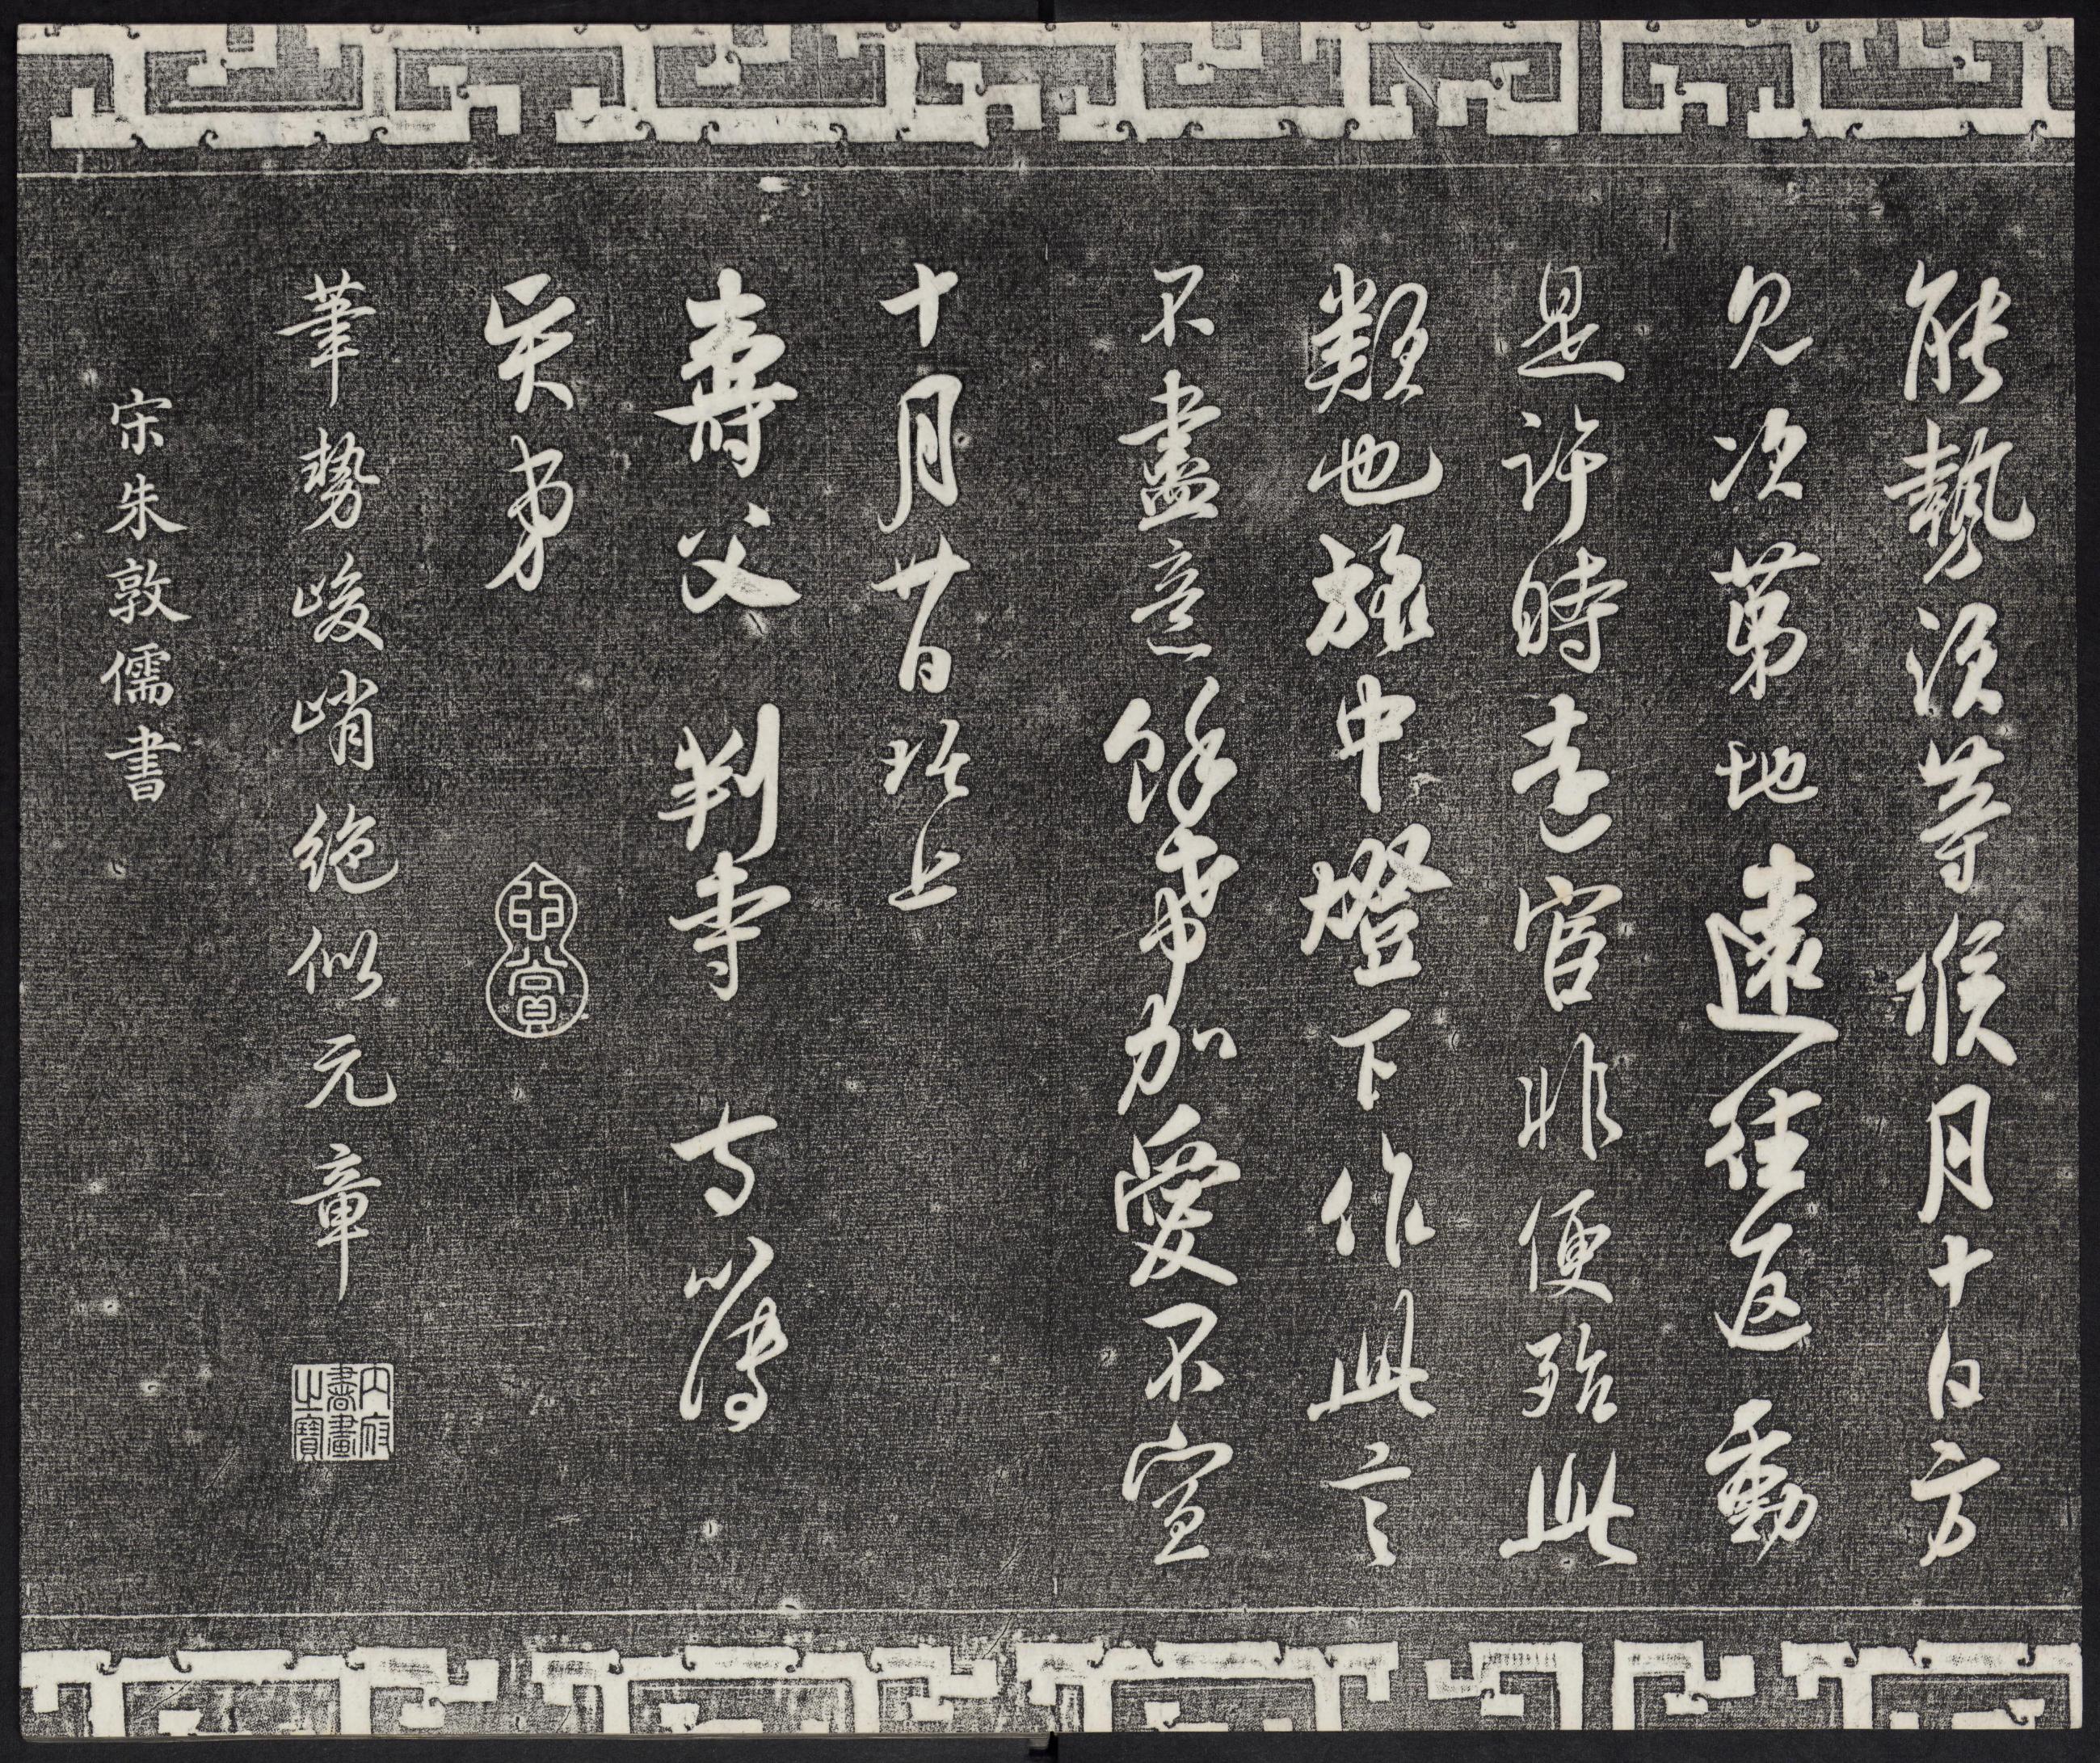 能執須等候月十日方
見次第地遠往返動
是許時遠官非便殆此
類也旅中燈下作此言
不盡意餘冀加愛不宣
十月廿日 珌上
壽父 判寺 寺簿
賢弟
甲賞
筆勢峻峭絶似元章
内府書畫之寶
宋朱敦儒書